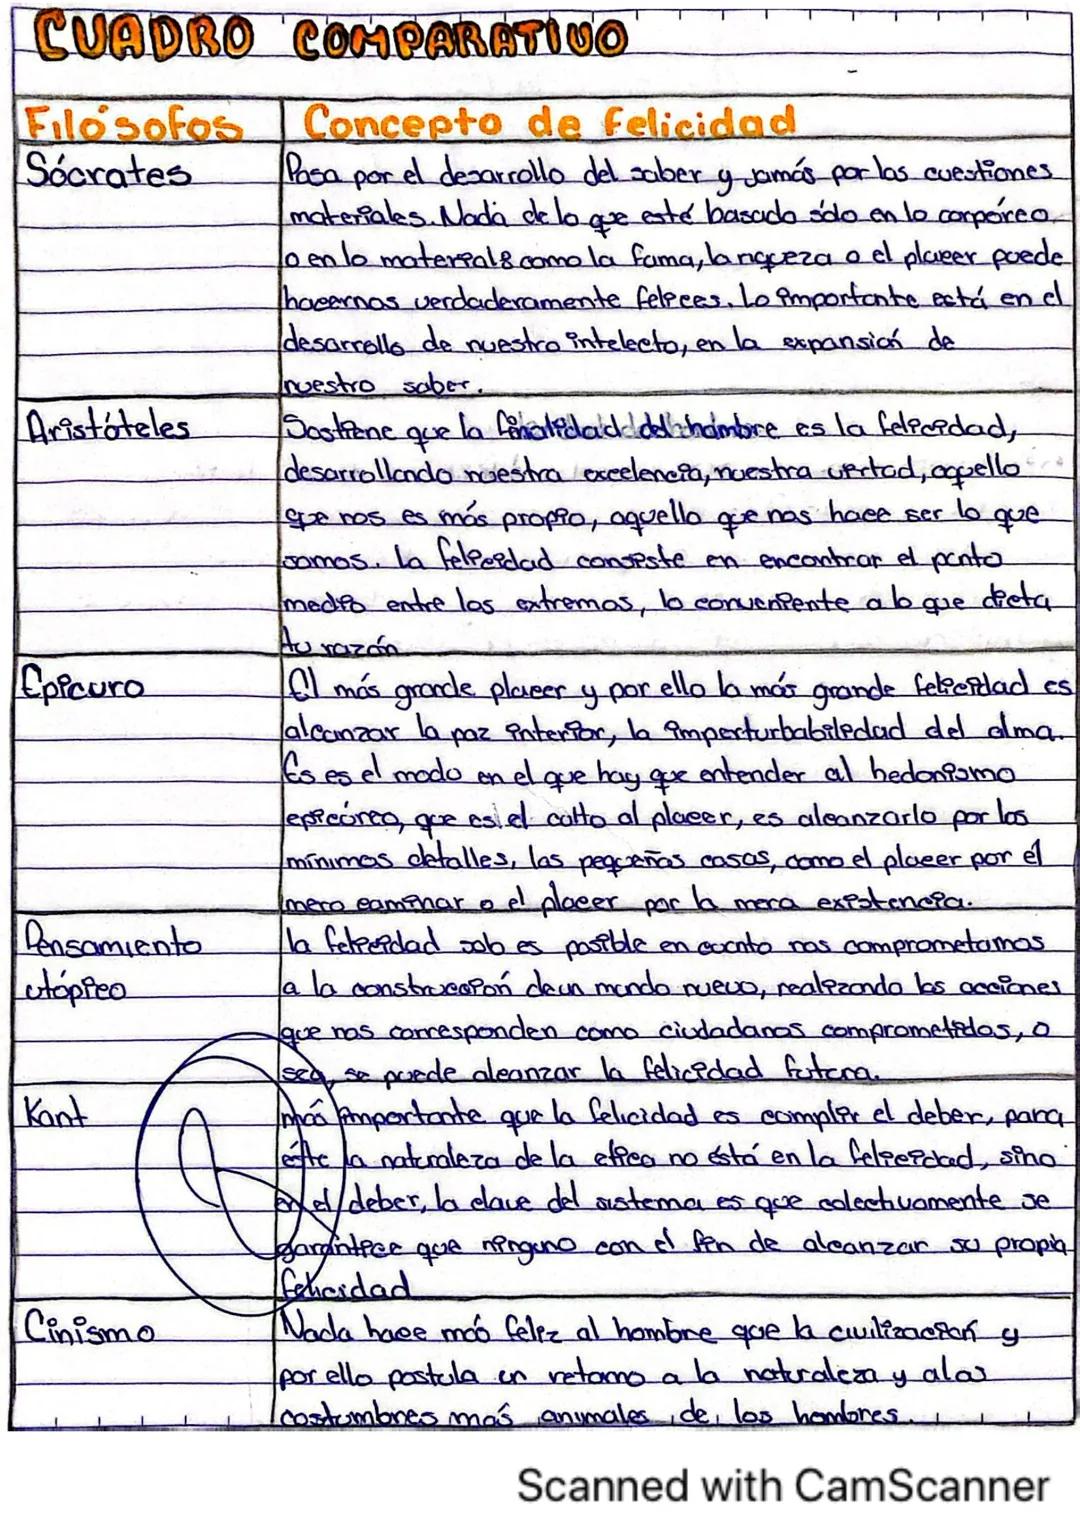 CUADRO COMPARATIVO
Filósofos
Concepto de felicidad
Sócrates
Pasa por el desarrollo del saber y jamás por las cuestiones
materiales. Nada de lo que esté basado sólo en lo corpóreo
o en lo material como la fama, la riqueza o el placer puede
hacernos verdaderamente felices. Lo importante está en el
desarrollo de nuestro intelecto, en la expansión de
nuestro saber.
Aristóteles
Sostiene que la finalidad del hombre es la felicidad,
desarrollando nuestra excelencia, nuestra virtud, aquello
que nos es más propio, aquello que nos hace ser lo que
somos. la felicidad consiste en encontrar el punto
medio entre los extremos, lo conveniente a lo que dicta
tu razón
Epicuro
El más grande placer y por ello la más grande felicidad es
alcanzar la paz interior, la imperturbabilidad del alma.
Es es el modo en el que hay que entender al hedonismo
epicúreo, que es el culto al placer, es alcanzarlo por los
mínimos detalles, las pequeñas cosas, como el placer por el
mero caminar o el placer por la mera existencia.
Pensamiento
utópico
la felicidad solo es posible en cuanto nos comprometamos
a la construcción de un mundo nuevo, realizando las acciones
que nos corresponden como ciudadanos comprometidos, o
sea, se puede alcanzar la felicidad futura.
Kant
más importante que la felicidad es cumplir el deber, para
éste la naturaleza de la ética no está en la felicidad, sino
en el deber, la clave del sistema es que colectivamente se
garantice que ninguno con el fin de alcanzar su propia
felicidad
Cinismo
Nada hace más feliz al hombre que la civilización y
por ello postula un retorno a la naturaleza y a las
costumbres más animales de los hombres.
Scanned with CamScanner